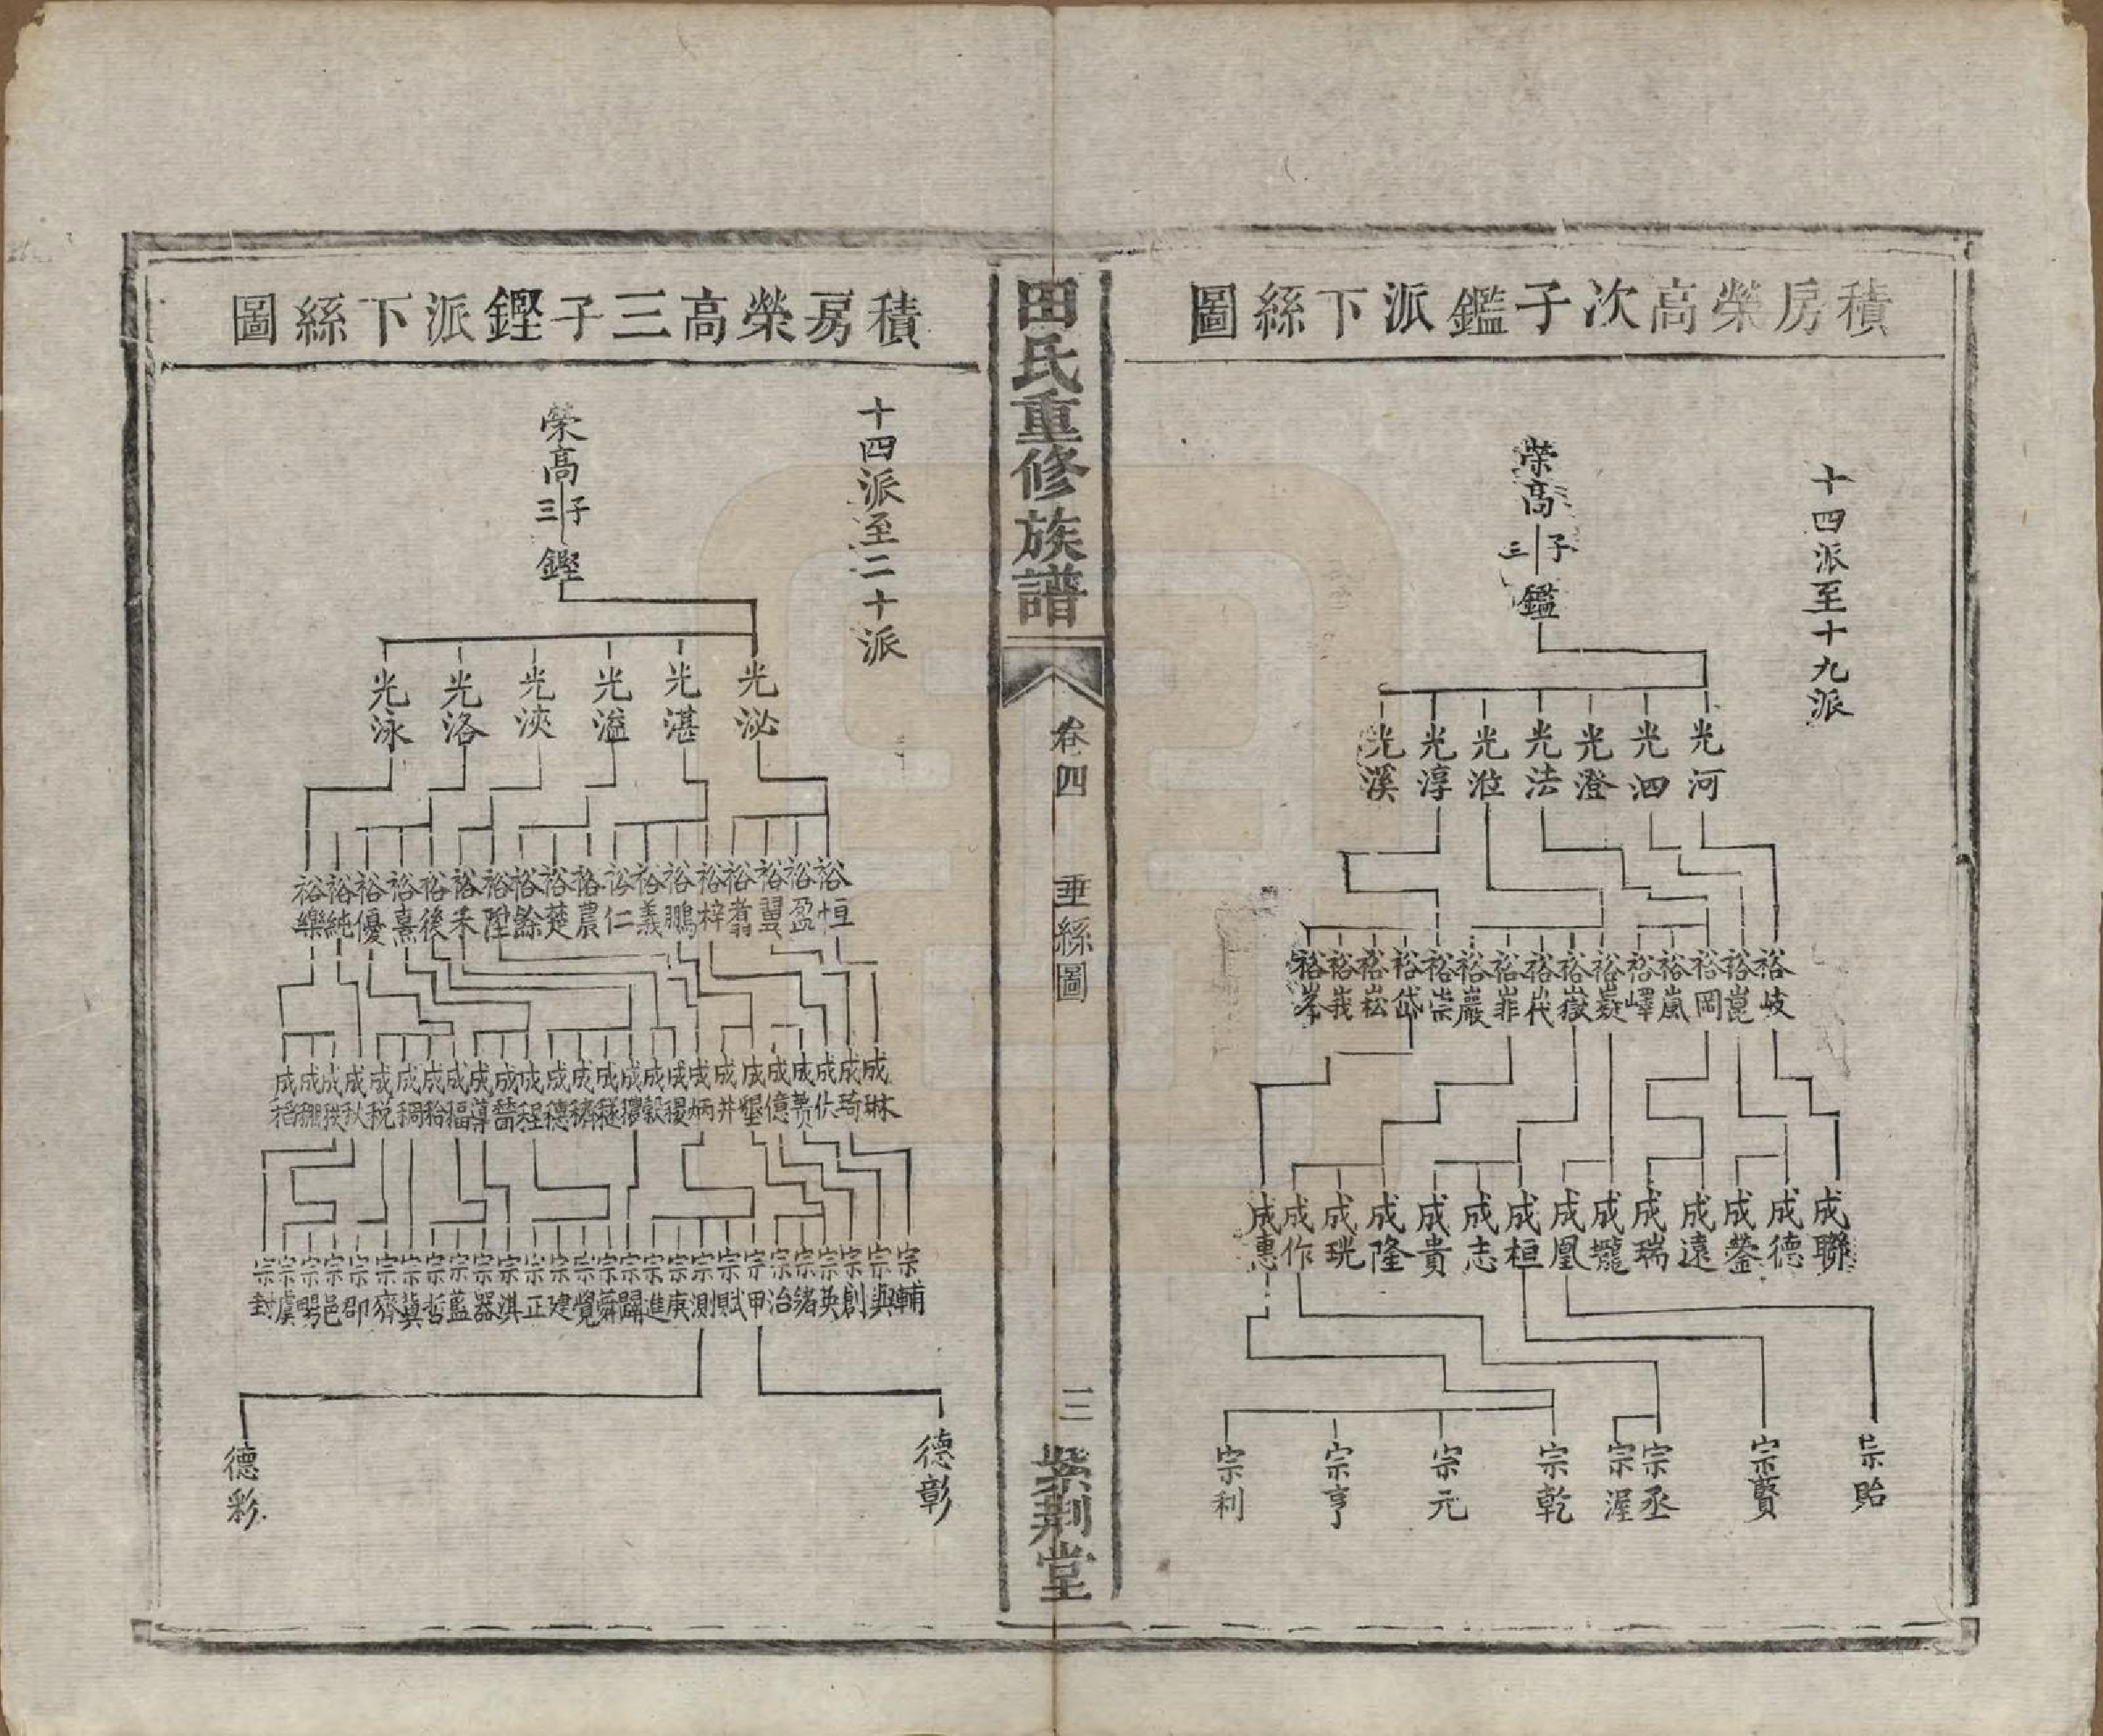 積房榮高次子鑑派下絲圖
十四派至十九派
榮高
三子
鑑
光河 光泗 光澄 光法 光淮 光淳 光溪
裕岐 裕崑 裕岡 裕嵐 裕嶧 裕嶷 裕嶽 裕 裕 裕巖 裕崇 裕岱 裕崧 裕峩 裕峯
成聯 成德 成鎣 成遠 成瑞 成壠 成凰 成桓 成志 成貴 成隆 成珖 成作 成惠
宗貽 宗賢 宗丞 宗渥 宗乾 宗元 宗亨 宗利
田氏重修族譜
卷四
垂絲圖
三
紫荆堂
積房榮高三子鏗派下絲圖
十四派至二十派
榮高
三子
鏗
光泌 光湛 光溢 光浹 光洛 光泳
裕恒 裕盈 裕翼 裕翥 裕梓 裕鵬 裕義 裕仁 裕農 裕楚 裕餘 裕陞 裕耒 裕後 裕熹 裕優 裕純 裕樂
成琳 成琦 成 成 成億 成墾 成井 成炳 成稷 成穀 成穠 成穟 成穧 成穗 成程 成 成 成福 成秴 成稠 成税 成秋 成秩 成稝 成稻
宗輔 宗與 宗創 宗英 宗緒 宗治 宗甲 宗賦 宗測 宗庚 宗進 宗闢 宗舜 宗覺 宗建 宗正 宗淇 宗器 宗藍 宗哲 宗冀 宗齊 宗郡 宗邑 宗 宗虞 宗封
德彰 德彩